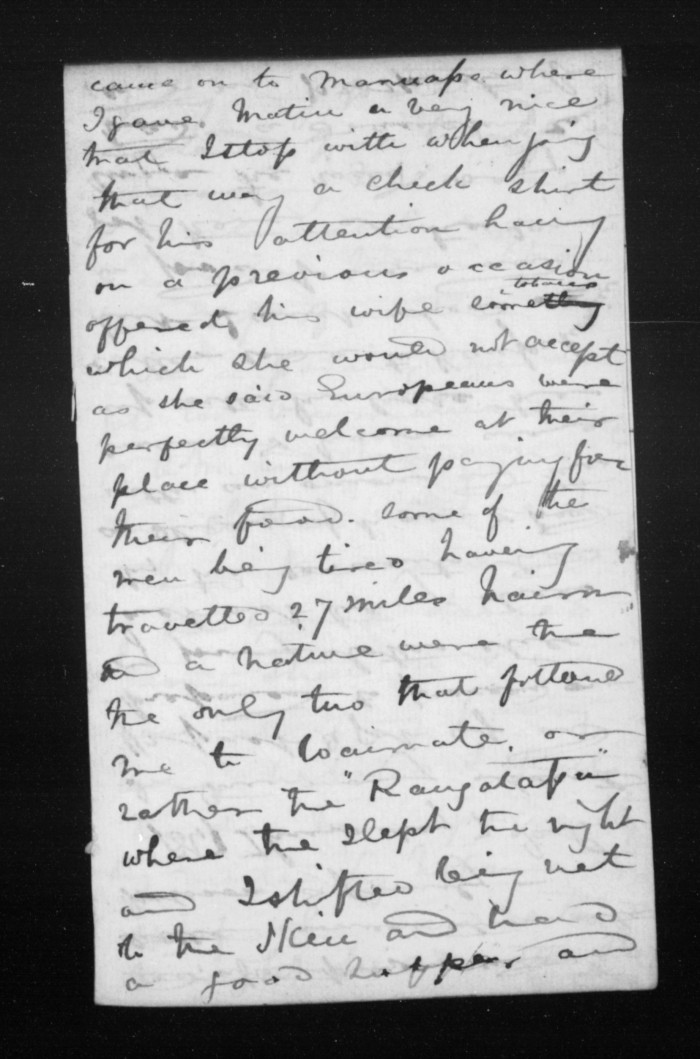 came on to Manuapo where
I gave Matiu a very nice
that I stop with when going
that way a check shirt
for his attention having
on a previous occasion
offered his wife something tobacco
which she would not accept
as she said Europeans were
perfectly welcome at their
place without paying for
their food. some of the
men being tired having
travelled 27 miles
and a native were the
the only two that followed
me to Waimate, or
rather the "Rangatapu"
where the I slept the night
and I shifted being wet
to the skin and had
a good supper and